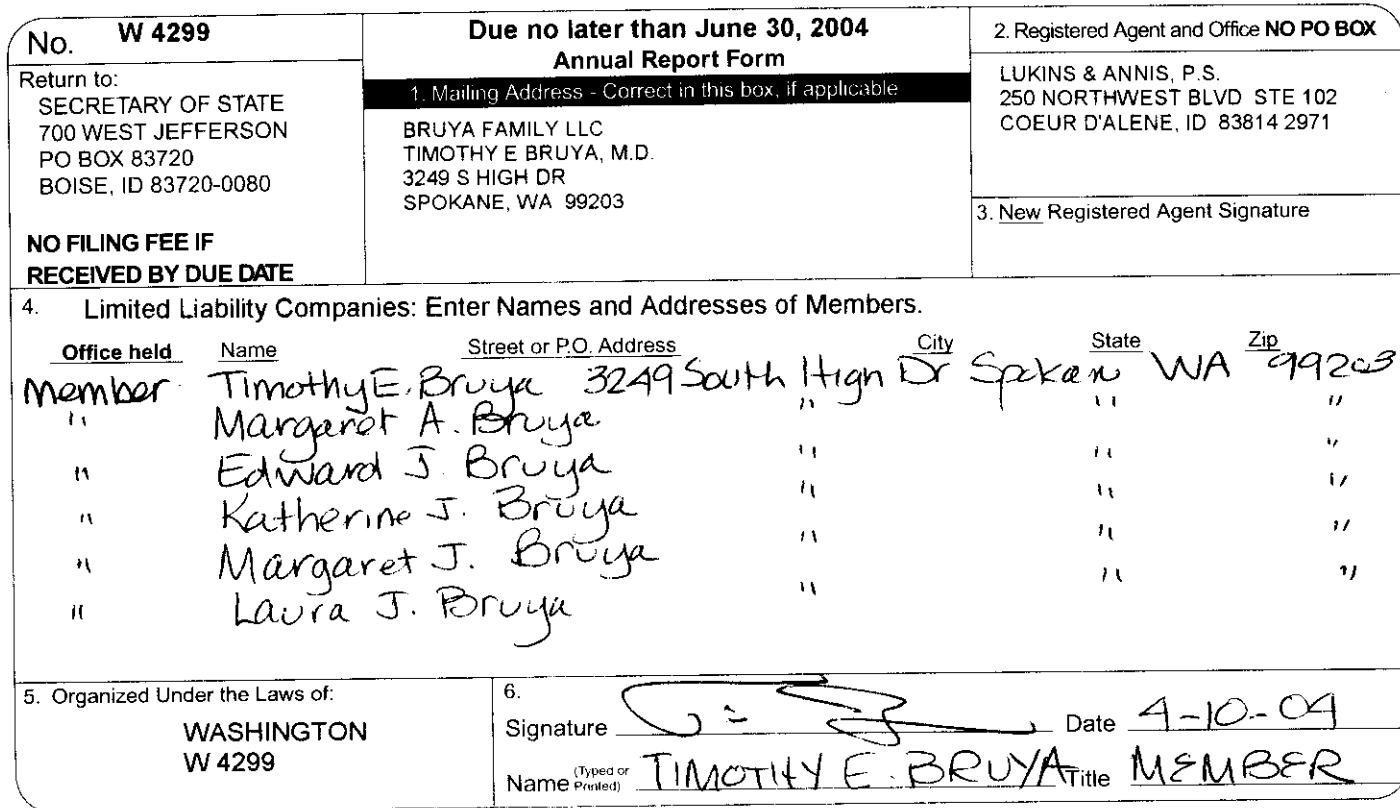 No. W 4299
Return to:
SECRETARY OF STATE
700 WEST JEFFERSON
PO BOX 83720
BOISE, ID 83720-0080
NO FILING FEE IF
RECEIVED BY DUE DATE
Due no later than June 30, 2004
Annual Report Form
1. Mailing Address - Correct in this box, if applicable
BRUYA FAMILY LLC
TIMOTHY E BRUYA, M.D.
3249 S HIGH DR
SPOKANE, WA 99203
2. Registered Agent and Office NO PO BOX
LUKINS & ANNIS, P.S.
250 NORTHWEST BLVD STE 102
COEUR D'ALENE, ID 83814 2971
3. New Registered Agent Signature
4. Limited Liability Companies: Enter Names and Addresses of Members.
Office held Name Street or P.O. Address City State Zip
Member Timothy E. Bruya 3249 South High Dr Spokane WA 99203
" Margaret A. Bruya " " "
" Edward J. Bruya " " "
" Katherine J. Bruya " " "
" Margaret J. Bruya " " "
" Laura J. Bruya " " "
5. Organized Under the Laws of:
WASHINGTON
W 4299
6.
Signature Date 4-10-04
Name (Typed or Printed) TIMOTHY E. BRUYA Title MEMBER